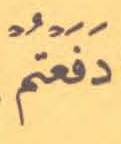 دَفَعْتُمْ